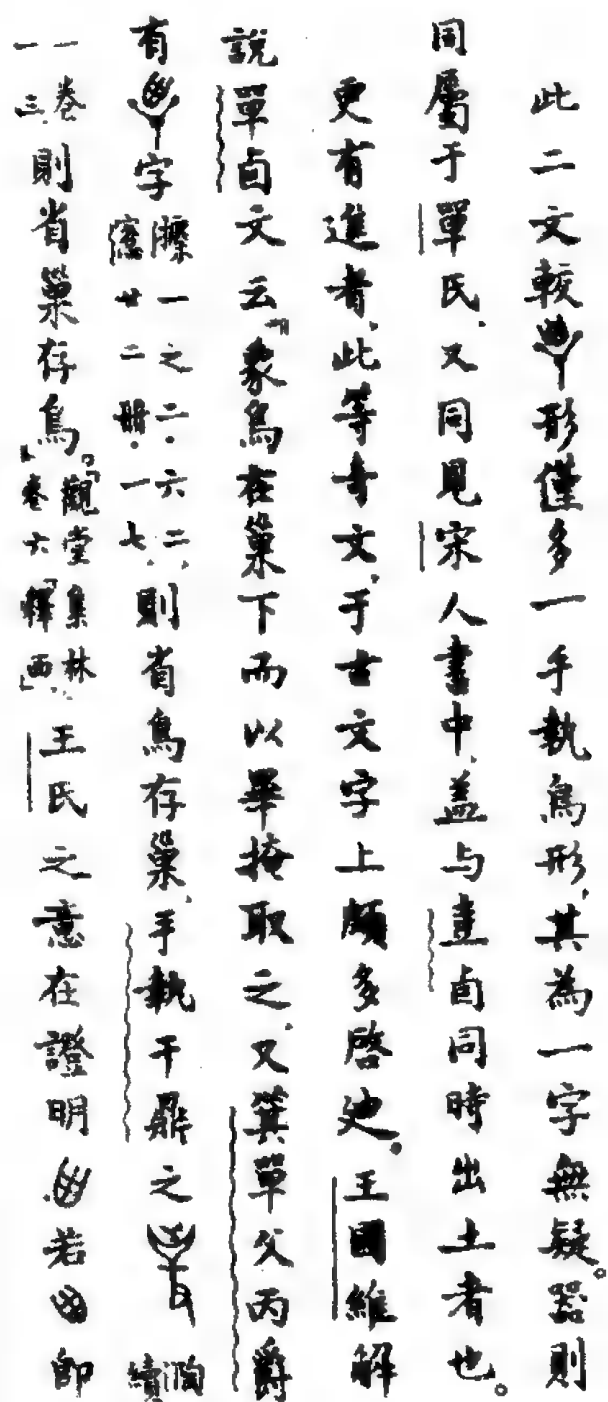 此二文較形僅多一手執鳥形，其為一字無疑。器則
同屬于單氏，又同見宋人書中，蓋与卣同時出土者也。
更有進者，此等奇文，于古文字上頗多啓廸。王國維解
說單卣文云『象鳥在巢下而以畢掩取之，又箕單父丙爵
有字攈一之二·六二，愙廿二冊·一七，則省鳥存巢，手執干鼎之續
一卷一三則省巢存鳥。』『觀堂集林』卷六『釋西』，王氏之意在證明若即